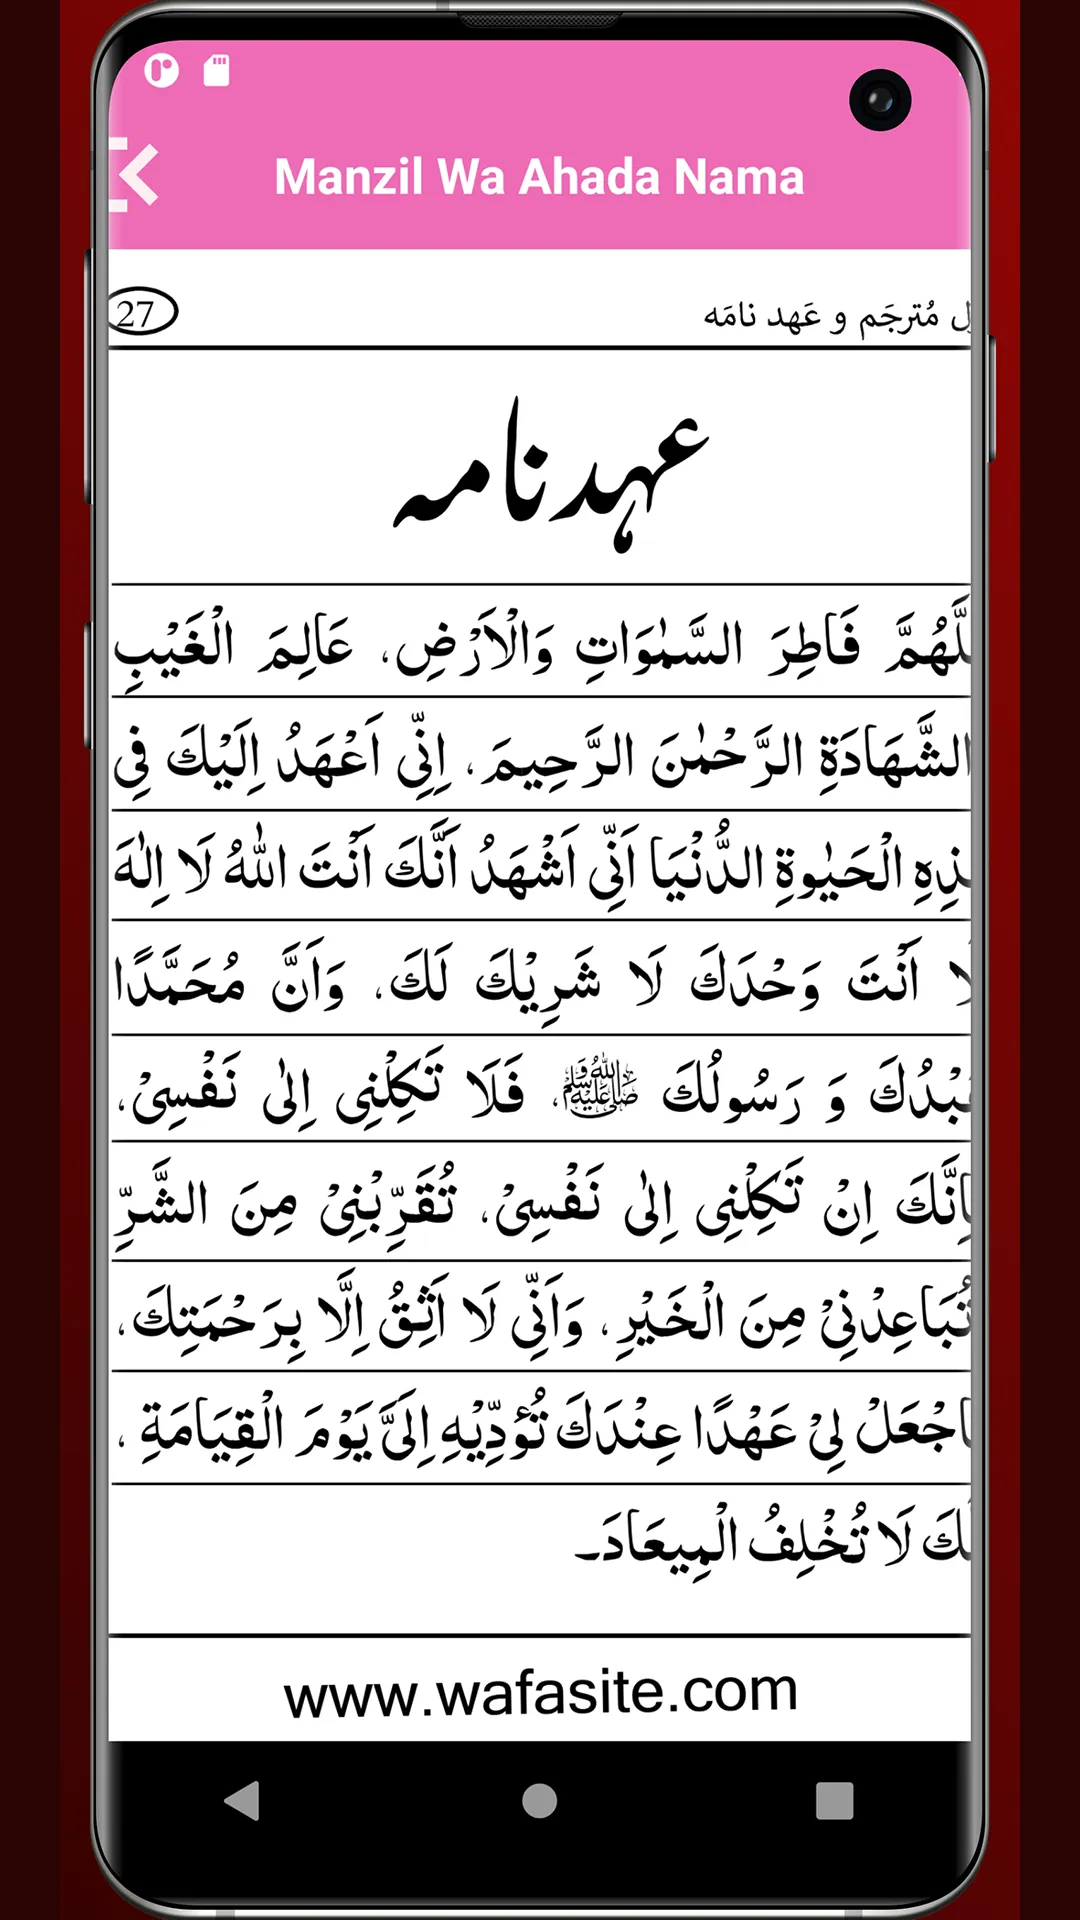 Manzil Wa Ahada Nama
27
مُترجَم و عَهد نامَه
عہد نامہ
فَاطِرَ السَّمٰوَاتِ وَالْاَرْضِ، عَالِمَ الْغَيْبِ
الشَّهَادَةِ الرَّحْمٰنَ الرَّحِيمَ، اِنِّي اَعْهَدُ اِلَيْكَ فِي
الْحَيٰوةِ الدُّنْيَا اَنِّي اَشْهَدُ اَنَّكَ اَنْتَ اللّٰهُ لَا اِلٰهَ
اَنْتَ وَحْدَكَ لَا شَرِيْكَ لَكَ، وَاَنَّ مُحَمَّدًا
وَ رَسُولُكَ ﷺ، فَلَا تَكِلْنِى اِلٰى نَفْسِىْ،
اِنْ تَكِلْنِى اِلٰى نَفْسِىْ، تُقَرِّبْنِىْ مِنَ الشَّرِّ
تُبَاعِدْنِىْ مِنَ الْخَيْرِ، وَاَنِّي لَا اَثِقُ اِلَّا بِرَحْمَتِكَ،
اجْعَلْ لِيْ عَهْدًا عِنْدَكَ تُؤَدِّيْهِ اِلَىَّ يَوْمَ الْقِيَامَةِ ،
لَا تُخْلِفُ الْمِيعَادَ۔
www.wafasite.com